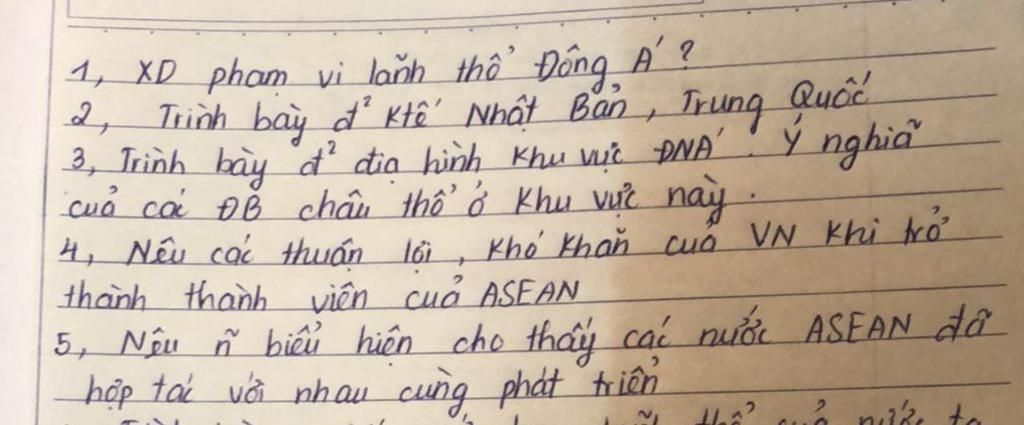 1, XD phạm vi lãnh thổ Đông Á ?
2, Trình bày đ² Ktế Nhật Bản, Trung Quốc
3, Trình bày đ² địa hình khu vực ĐNÁ. Ý nghĩa
của các ĐB châu thổ ở khu vực này.
4, Nêu các thuận lợi, khó khăn của VN khi trở
thành thành viên của ASEAN
5, Nêu ~n biểu hiện cho thấy các nước ASEAN đã
hợp tác với nhau cùng phát triển
thổ của nước ta